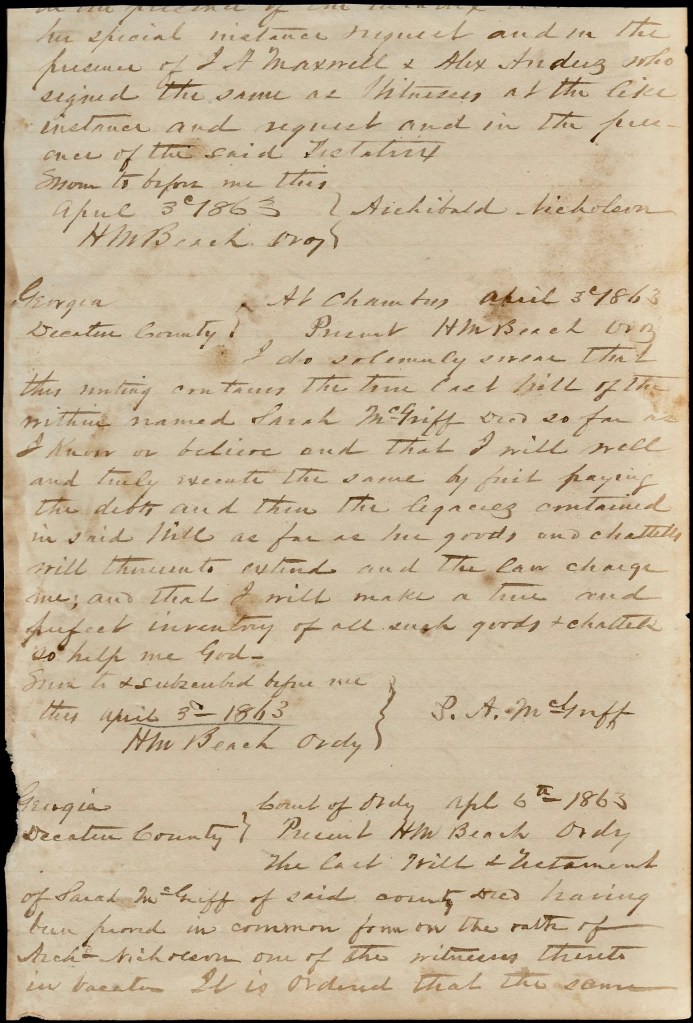 in the presence of the
her special instance request and in the
presence of J A Maxwell & Alex Anderz who
signed the same as Witnesses at the like
instance and request and in the pres-
ence of the said Testatrix
Sworn to before me this
April 3d 1863 } Archibald Nicholson
H M Beach Ordy
Georgia } At Chambers april 3d 1863
Decatur County } Present H M Beach Ordy
I do solemnly swear that
this writing contains the true Last Will of the
within named Sarah McGriff Decd so far as
I know or believe and that I will well
and truly execute the same by first paying
the debts and then the legaciez contained
in said Will as far as her goods and chattells
will thereunto extend and the law charge
me; and that I will make a true and
perfect inventory of all such goods & chattels
so help me God-
Sworn to & subscribed before me
this april 3d- 1863 } P. A. McGriff
H M Beach Ordy
Georgia } Court of Ordy Apl 6th 1863
Decatur County } Present H M Beach Ordy
The Last Will & Testament
of Sarah McGriff of said county Decd having
been proved in common form on the oath of
Archd Nicholson one of the witnesses thereto
in vacation It is ordered that the same